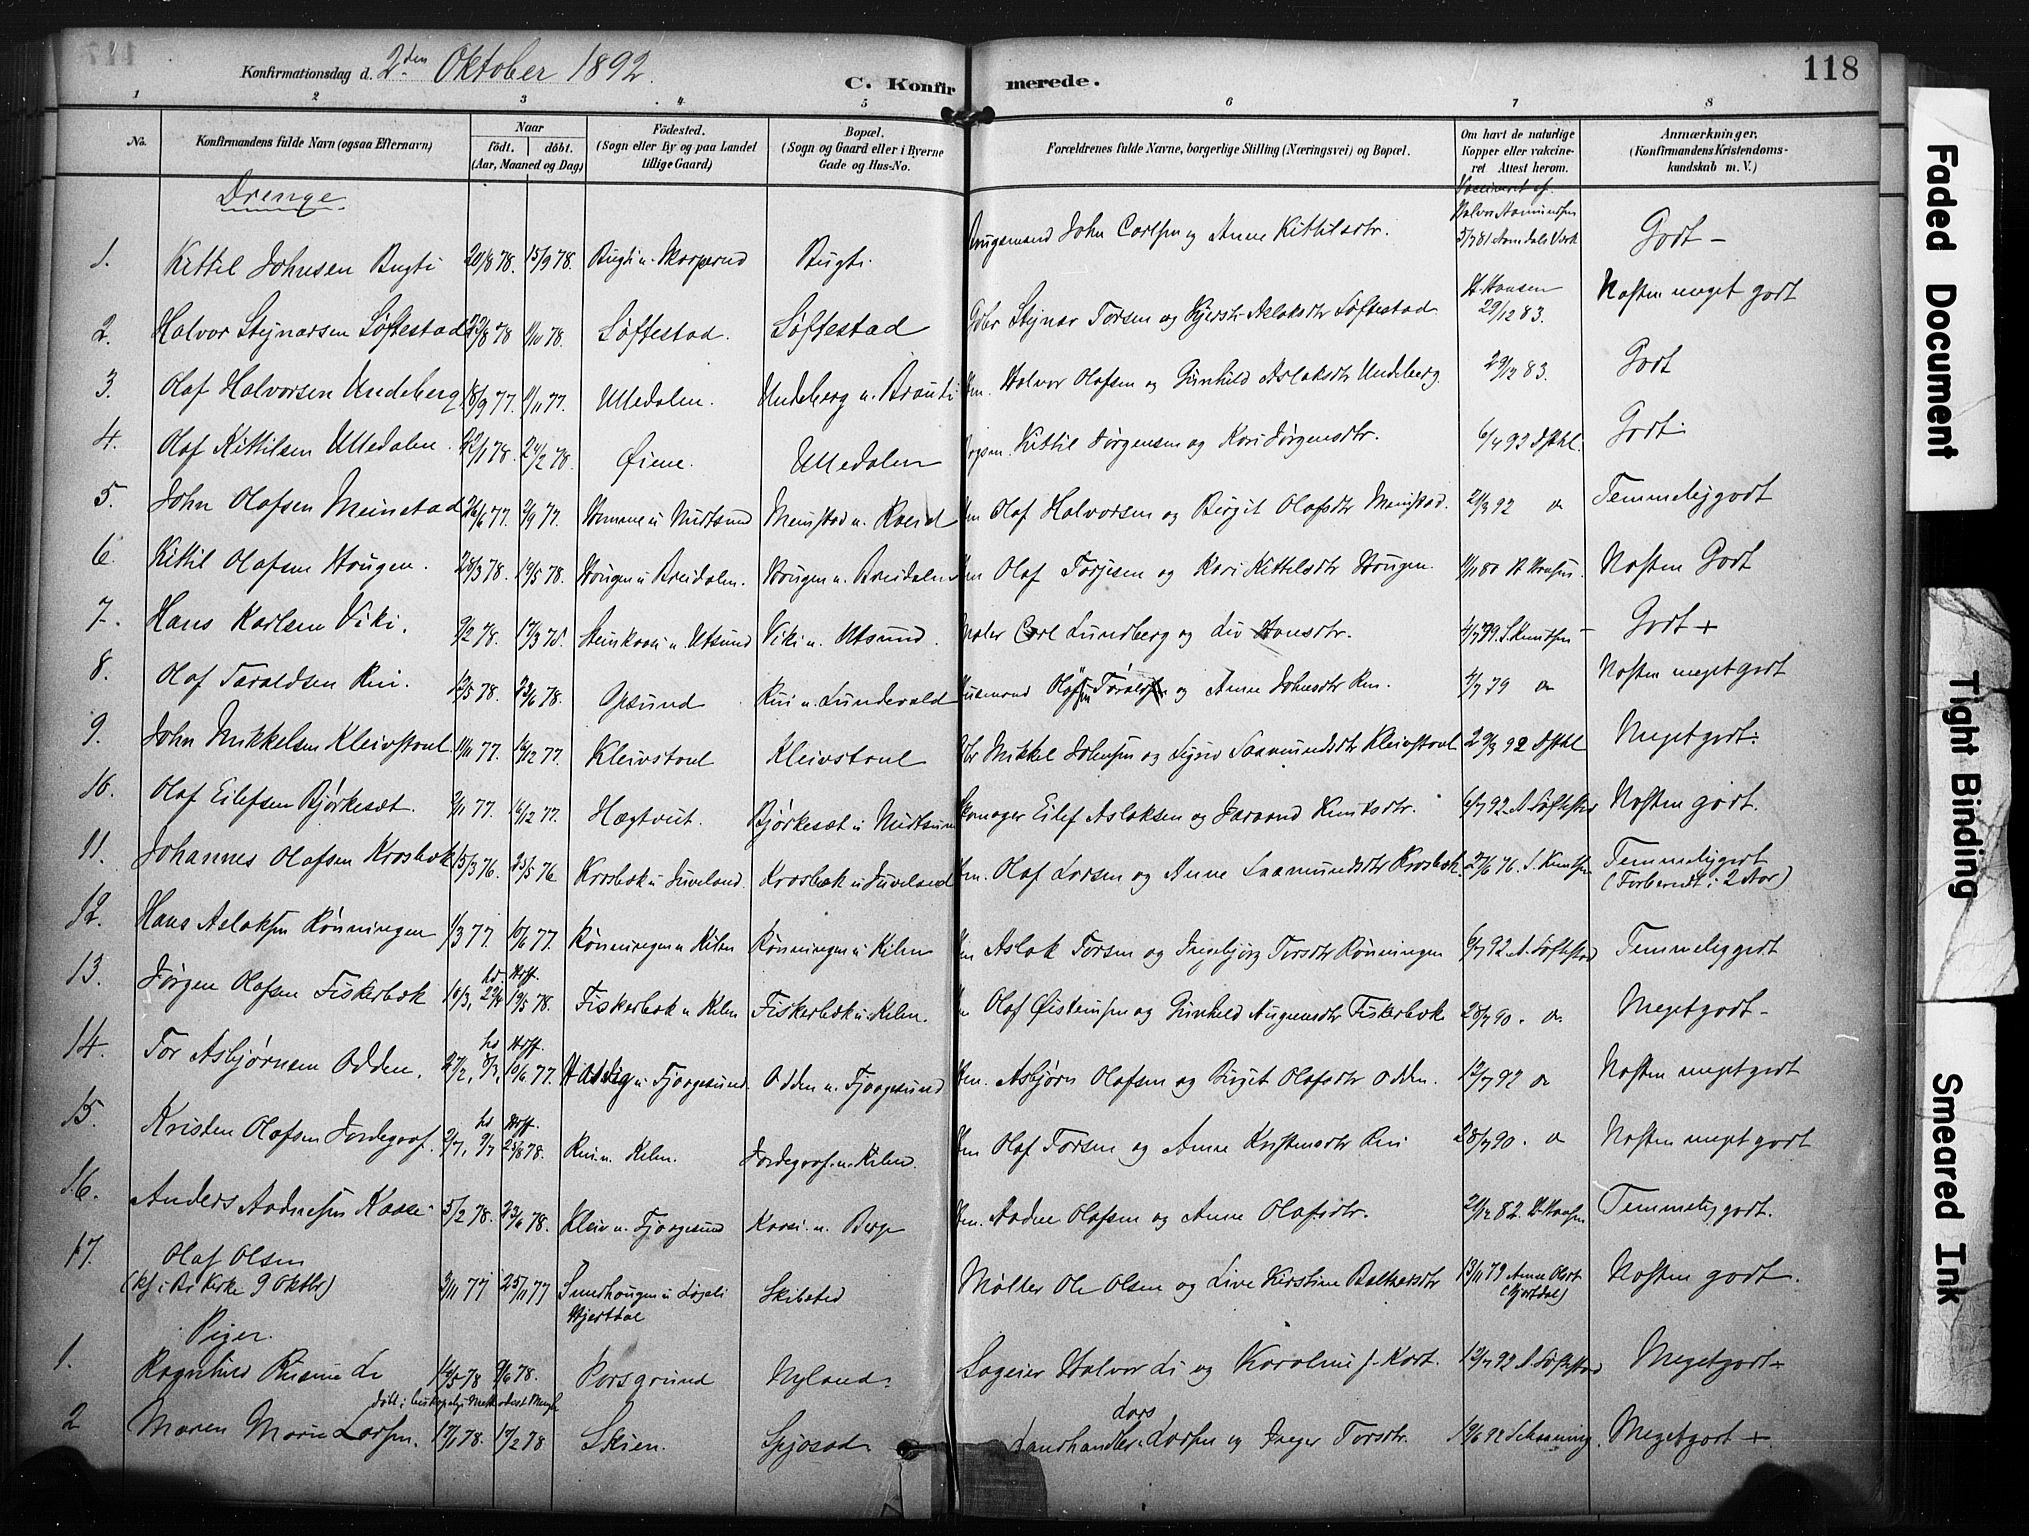 118
Konfirmationsdag d. 2den Oktober 1892.
C. Konfirmerede.
1 2 3 4 5 6 7 8
No. Konfirmandens fulde Navn (ogsaa Efternavn) Naar födt. döbt. (Aar, Maaned og Dag) Födested. (Sogn eller By og paa Landet tillige Gaard) Bopæl. (Sogn og Gaard eller i Byerne Gade og Hus-No. Forældrenes fulde Navne, borgerlige Stilling (Næringsvei) og Bopæl. Om havt de naturlige Kopper eller vakcineret Attest herom. Anmærkninger. (Konfirmandens Kristendomskundskab m. V.)
Drenge
1. Kittil Johnsen Bugti 20/8 78. 15/9 78. Bugti u. Skarperud Bugti. John Carlsen og Anne Kittilsdtr. Vaccineret af Halvor Aamundsen 5/7 81 Aamdals Værk Godt -
2. Halvor Stejnarsen Søftestad /8 78 /10 78. Søftestad. Søftestad Stejnar Torsen og Aslaksdtr Søftestad H. Hansen 29/12 83. Næsten meget godt
3. Olaf Halvorsen Undeberg 18/9 77. /11 77. Ulledalen. Undeberg u. Brauti Halvor Olafsen og Gunhild Aslaksdtr Undeberg. 29/12 83. Godt
4. Olaf Kittilsen Ulledalen. 22/1 78. 24/2 78. Øiene. Ulledalen Kittil Jørgensen og Kari Jørgensdtr. 6/7 92 Godt
5. John Olafsen Meinstad 26/6 77. /9 77. u Midtsund Meinstad u. Olaf Halvorsen og Birgit Olafsdtr Meinstad. 21/3 92 Temmelig godt
6. Kittil Olafsen Haugen. 28/3 78. 19/5 78. Haugen u Breidalen. Haugen u. Breidalen Olaf Torjesen og Kari Kittelsdtr Haugen. /11 80 H Hansen. Næsten Godt
7. Hans Karlsen Viki. 9/2 78. 17/3 78. u. Utsund Viki u. Utsund. Carl Lundberg og Liv Hansdtr. 4/7 79. S. Knudsen - Godt +
8. Olaf Taraldsen Rui. 12/5 78. 23/6 78. Opsund Rui u. Lundevald Olaf og Anne Johnsdtr Rui. 4/7 79 Næsten meget godt
9. John Mikkelsen Kleivstaul. /11 77. 16/12 77. Kleivstaul Kleivstaul Mikkel Johnsen og Sigrid Saamundsdtr Kleivstaul 29/3 92 Meget godt.
10. Olaf Eilefsen Bjørkesæt. /11 77. 16/12 77. Hægtveit. Bjørkesæt u Midtsund Eilef Aslaksen og Jaraand Knutsdtr. 6/7 92. A Søftestad Næsten godt.
11. Johannes Olafsen Krosbæk 15/3 76. 25/5 76 Krosbæk u Juveland. Krosbæk u Juveland Olaf Larsen og Anne Saamundsdtr Krosbæk. 27/6 76. S. Knudsen Temmelig godt (Forberedt i 2 Aar)
12. Hans Aslaksen Rønningen 1/3 77. 10/6 77. Rønningen u Kilen Rønningen u. Kilen Aslak Torsen og Ingebjørg Torsdtr Rønningen 6/7 92. A. Søftestad Temmelig godt
13. Jørgen Olafsen Fiskerbæk 10/3, hd. Stff. 19/5 78. Fiskerbæk u Kilen Fiskerbæk u. Kilen. Olaf Øistensen og Gunhild Augundsdtr Fiskerbæk 28/7 90. Meget godt -
14. Tor Asbjørnsen Odden. 27/2, hd Stff. 10/6 77. u Fjaagesund. Odden u. Fjaagesund Asbjørn Olafsen og Birgit Olafsdtr Odden. 12/7 92 Næsten meget godt
15. Kristen Olafsen Jordegraf. 2/7, hd Stff. 25/8 78. Rui. u. Kilen. Jordegraf. u. Kilen. Olaf Torsen og Anne Kristensdtr Rui 28/7 90. Næsten meget godt
16. Anders Aadnesen Kaasi 5/2 78. 23/6 78. Kleiv u. Fjaagesund Kaasi. u. Berge Aadne Olafsen og Anne Olafsdtr. 21/12 82. H. Hansen Temmelig godt.
17. Olaf Olsen (kf. i Bø Kirke 9 Oktbr) 3/11 77 25/11 77 Sundhaugen u Løgeli Hjertdal Skibsted Møller Ole Olsen og Live Kirstine Baltzersdtr 13/11 79 Anne Olsdt (Hjertdal) Næsten godt.
Piger.
1. Ragnhild Li 16/5 78 9/6 78. Porsgrund Nyland. Sageier Halvor Li og Karoline f. Kort. 12/7 92 A Søftestad Meget godt +
2 Maren Marie Larsen. 17/1 78. 17/2 78. Skien. Spjosod. Landhandler Lars Larsen og Inger Torsdtr. 19/6 92 Schanning. Meget godt +
Faded Document
Tight Binding
Smeared Ink